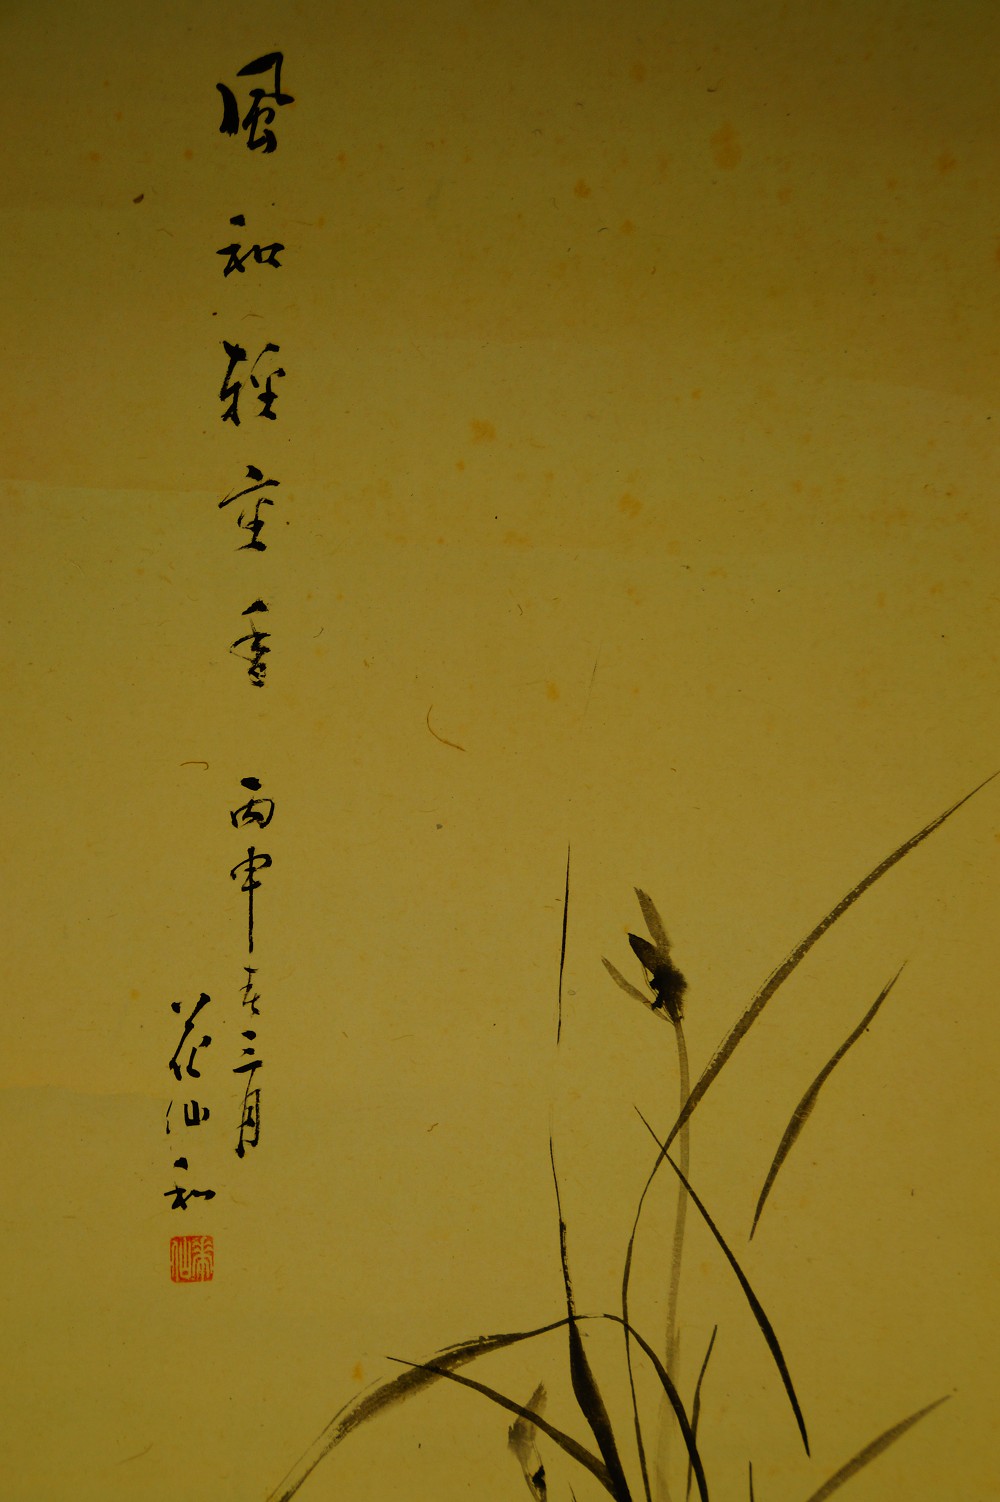 風和輕重香 丙申春三月
花仙和